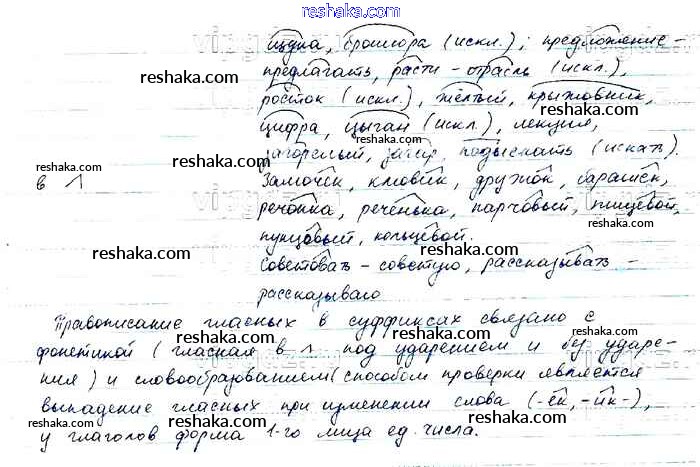 reshaka.com
щука, брошюра (искл.); предложение –
предлагать, расти – отрасль (искл.),
reshaka.com reshaka.com
росток (искл.), жёлтый, крыжовник,
цифра, цыган (искл.), лекция,
reshaka.com reshaka.com reshaka.com
загорелый, загар, подыскать (искать).
reshaka.com
в л Замочек, ключик, дружок, барашек,
речонка, реченька, парчовый, пищевой,
reshaka.com
пунцовый, кольцевой.
reshaka.com reshaka.com reshaka.com
Советовать – советую, рассказывать –
рассказываю
Правописание гласных в суффиксах связано с
reshaka.com reshaka.com
фонетикой (гласная в л под ударением и без ударе-
ния) и словообразованием (способом проверки является
reshaka.com reshaka.com
выпадение гласных при изменении слова (-ек, -ик-),
reshaka.com reshaka.com
у глаголов форма 1-го лица ед. числа.